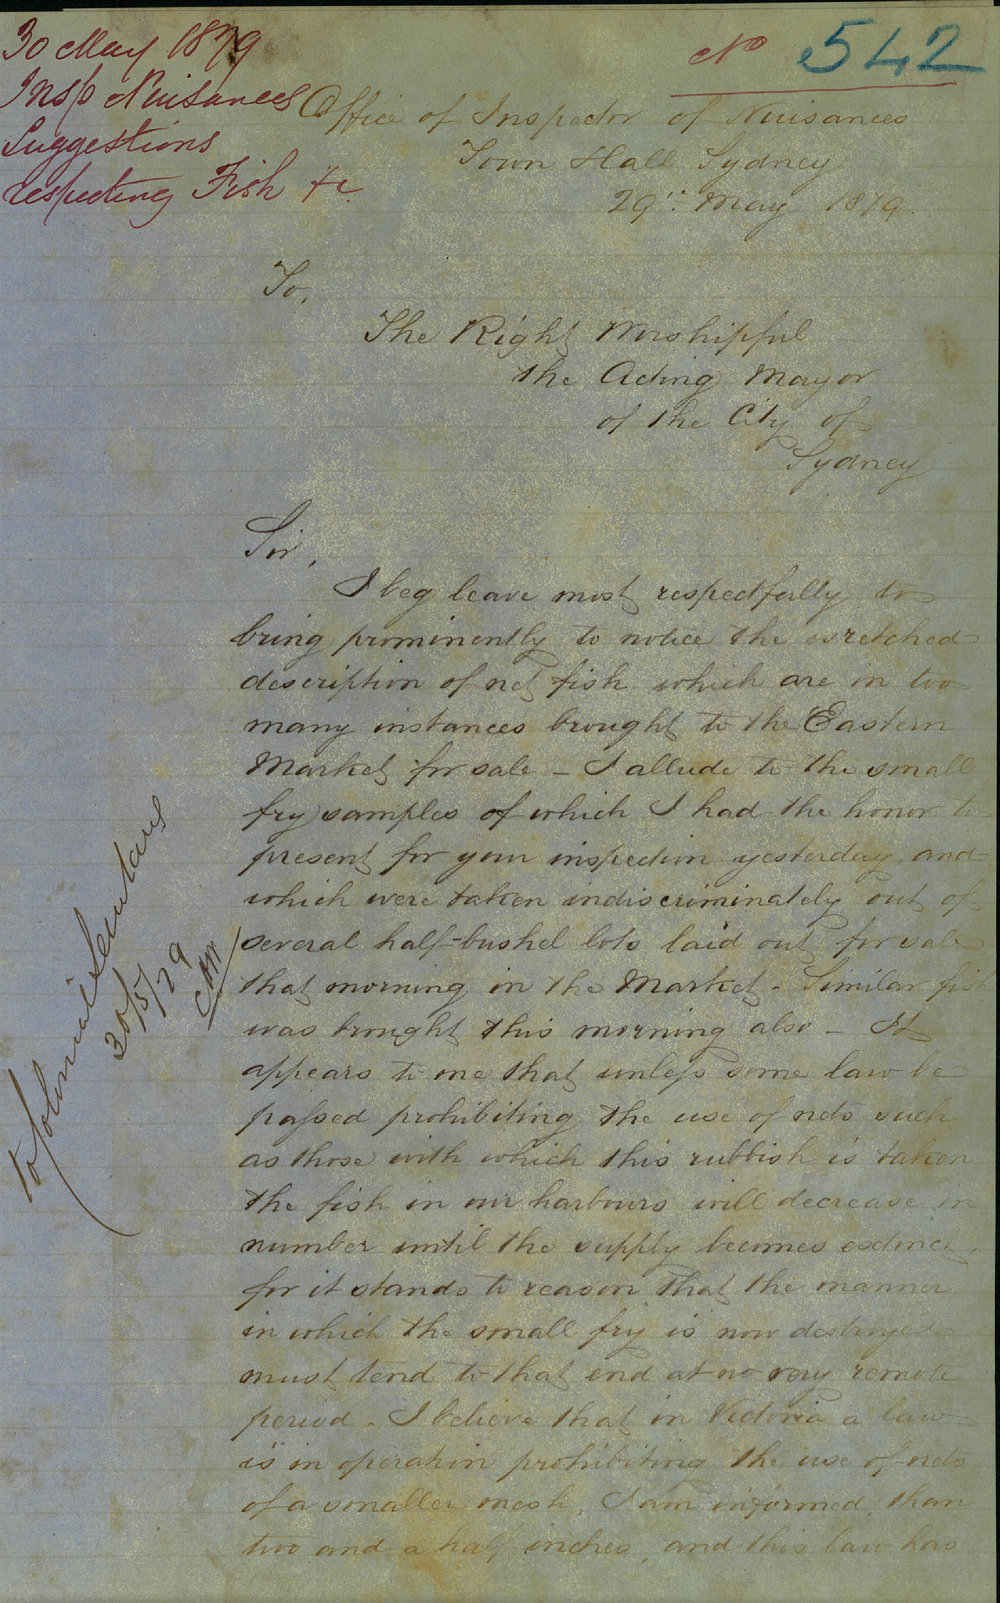 30 May 1879
Insp Nuisances
Suggestions
respecting Fish &c.
No 542
Office of Inspector of Nuisances
Town Hall Sydney
29th May 1879.
To,
The Right Worshipful
the Acting Mayor
of the City of
Sydney
Sir,
I beg leave most respectfully to
bring prominently to notice the wretched
description of net fish which are in too
many instances brought to the Eastern
Market for sale - I allude to the small
fry samples of which I had the honor to
present for your inspection yesterday, and
which were taken indiscriminately out of
several half-bushel lots laid out for sale
that morning in the Market - Similar fish
was brought this morning also - It
appears to me that unless some law be
passed prohibiting the use of nets such
as those with which this rubbish is taken
the fish in our harbours will decrease in
number until the supply becomes extinct,
for it stands to reason that the manner
in which the small fry is now destroyed
must tend to that end at no very remote
period - I believe that in Victoria a law
is in operation prohibiting the use of nets
of a smaller mesh, I am informed, than
two and a half inches, and this law has
to Colonial Secretary
30/5/79